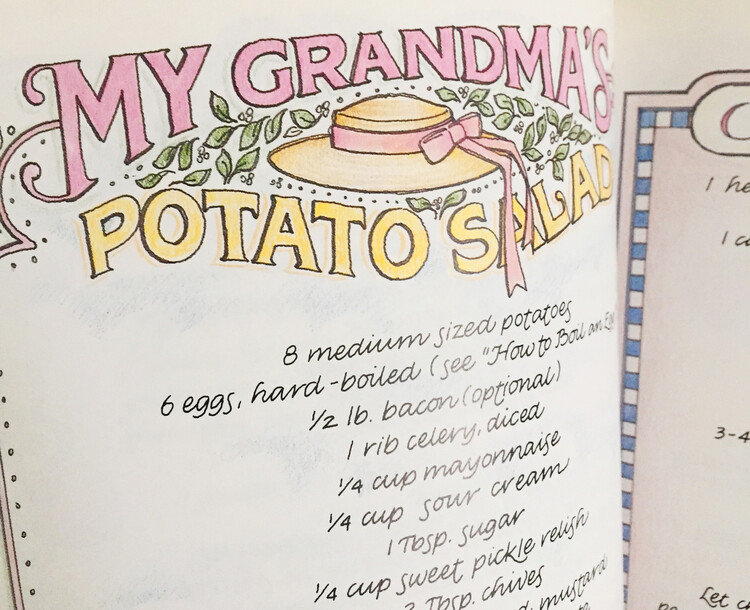 MY GRANDMA'S
POTATO SALAD
8 medium sized potatoes
6 eggs, hard-boiled (see "How to Boil an Egg
1/2 lb. bacon (optional)
1 rib celery, diced
1/4 cup mayonnaise
1/4 cup sour cream
1 Tbsp. sugar
1/4 cup sweet pickle relish
Tbsp. chives
mustard
1 he
1 c
3-4
Let c